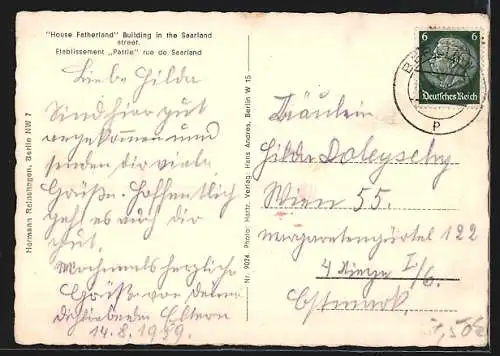 "House Fatherland" Building in the Saarland
street.
Etablissement „Patrie" rue de Saarland
Liebe Hilda
Sind hier gut
angekommen und
senden dir viele
Grüße. Hoffentlich
geht es auch dir
gut.
Nochmals herzliche
Grüße von deinen
dichliebenden Eltern
14.8.1939.
Hermann Reisshagen, Berlin NW 7
Nr. 9024 Photo: Hartz. Verlag: Hans Andres, Berlin W 15
6 6
Deutsches Reich
p
Fräulein
Hilda
Wien 55.
Margaretengürtel 122
4 I/6.
Ostmark